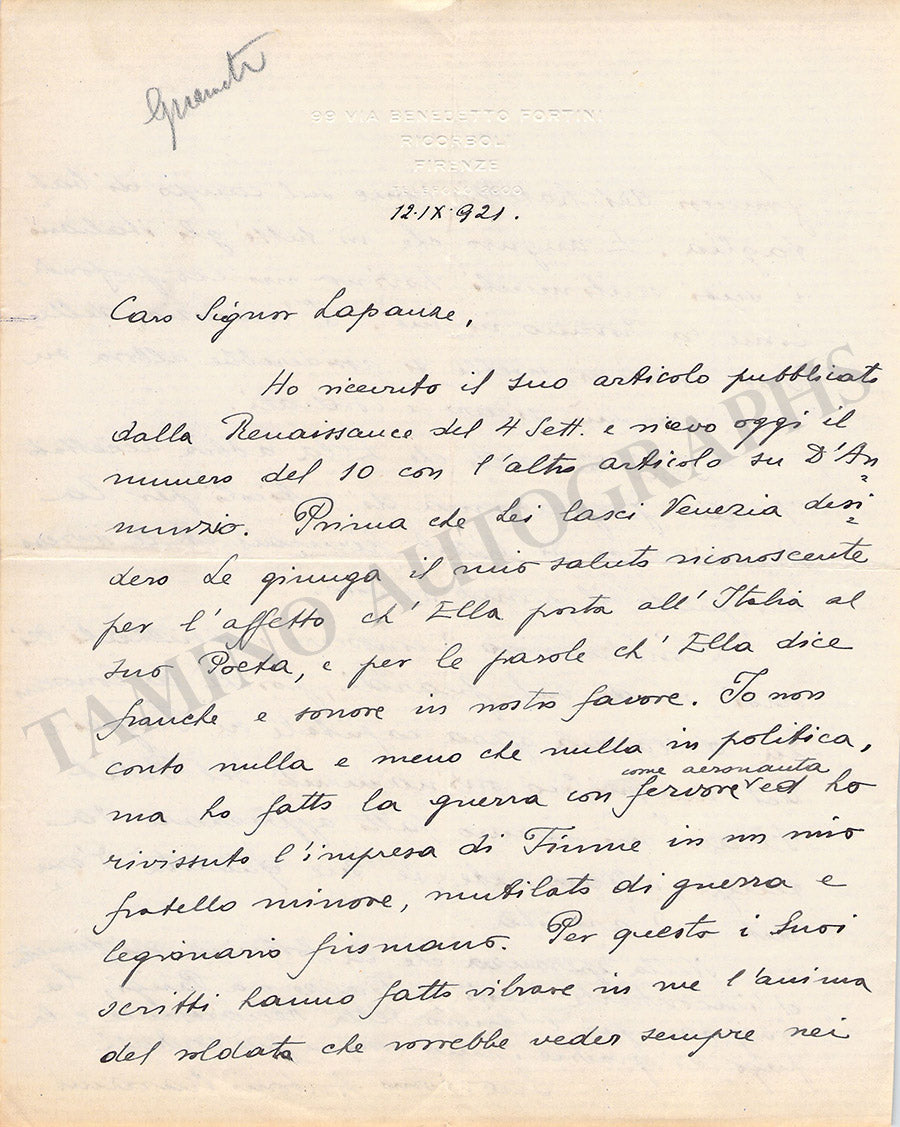 99 VIA BENEDETTO FORTINI
RICORBOLI
FIRENZE
12·IX·921.
Caro Signor Lapauze,
Ho ricevuto il suo articolo pubblicato
dalla Renaissance del 4 Sett. e ricevo oggi il
numero del 10 con l'altro articolo su D'An=
nunzio. Prima che Lei lasci Venezia desi=
dero Le giunga il mio saluto riconoscente
per l'affetto ch'Ella porta all'Italia al
suo Poeta, e per le parole ch'Ella dice
franche e sonore in nostro favore. Io non
conto nulla e meno che nulla in politica,
come aeronauta
ma ho fatto la guerra con fervore ed ho
rivissuto l'impresa di Fiume in un mio
fratello minore, mutilato di guerra e
legionario fiumano. Per questo i Suoi
scritti hanno fatto vibrare in me l'anima
del soldato che vorrebbe veder sempre nei
TAMINO AUTOGRAPHS